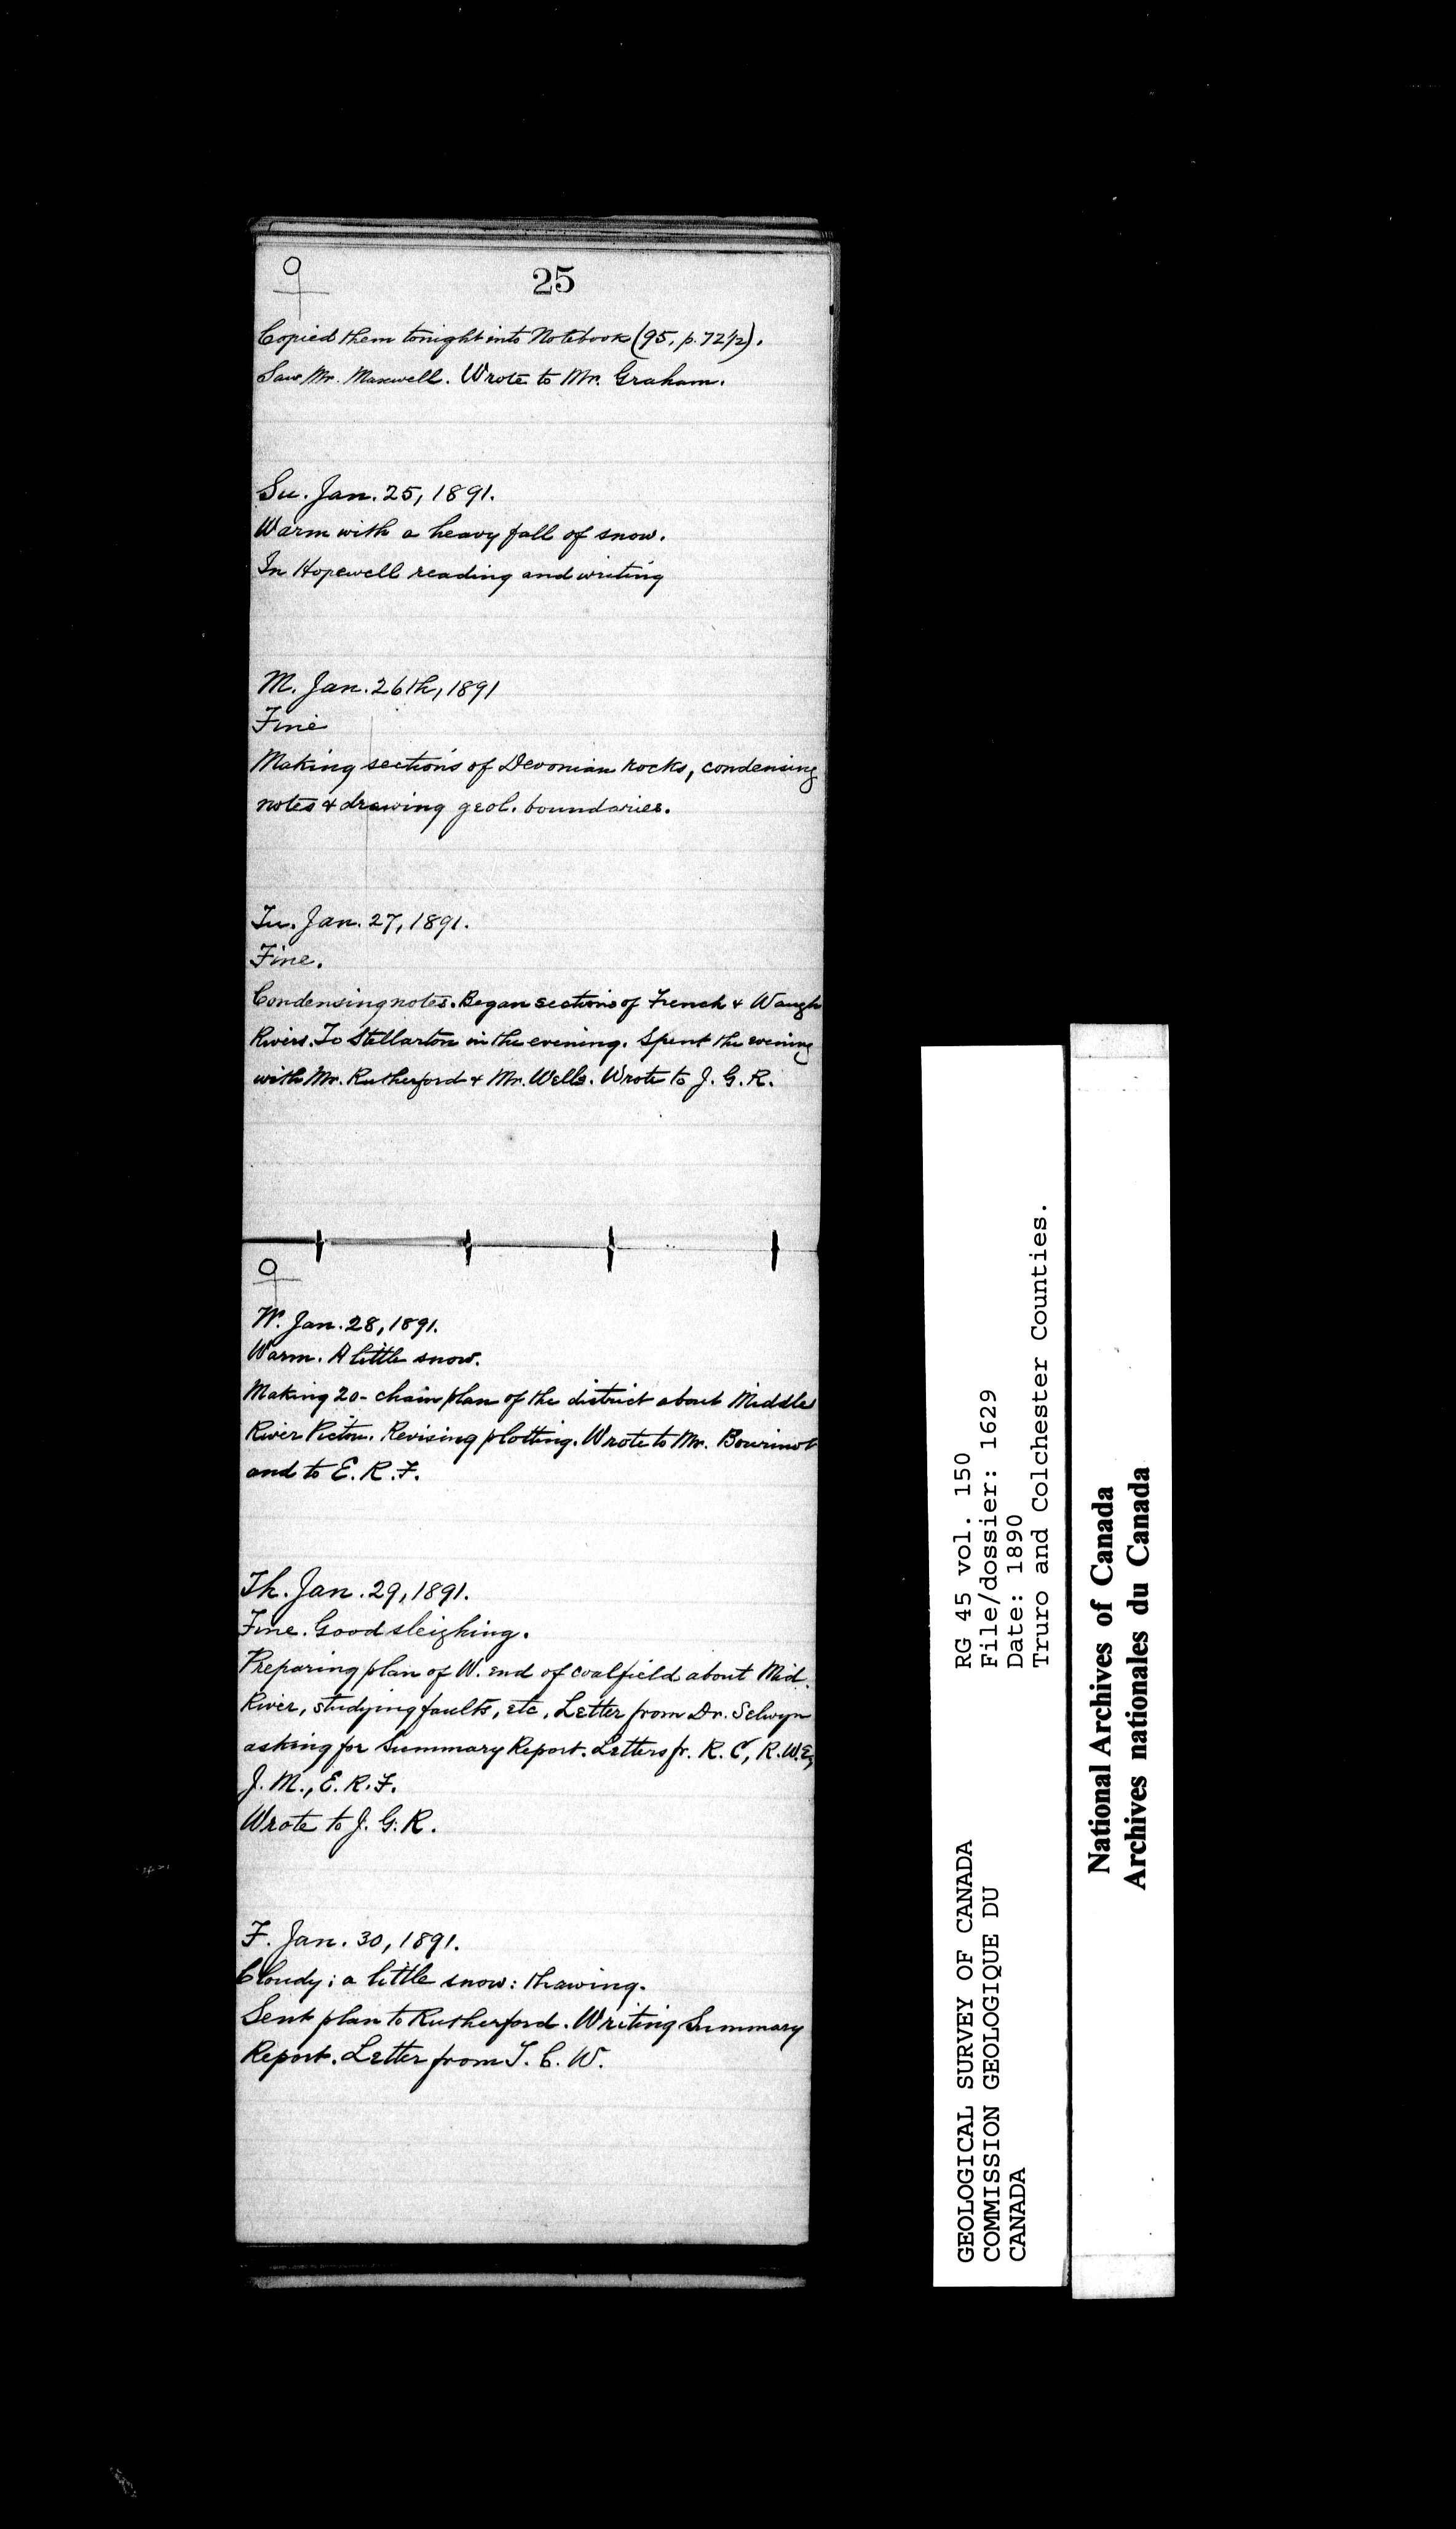 25
Copied them tonight into Notebook (95, p. 72 1/2).
Saw Mr. Maxwell. Wrote to Mr. Graham.
Su. Jan. 25, 1891.
Warm with a heavy fall of snow.
In Hopewell reading and writing
M. Jan. 26th, 1891
Fine
Making sections of Devonian rocks, condensing
notes & drawing geol. boundaries.
Tu. Jan. 27, 1891.
Fine.
Condensing notes. Began sections of French & Waugh
Rivers. To Stellarton in the evening. Spent the evening
with Mr. Rutherford & Mr. Wells. Wrote to J. G. R.
W. Jan. 28, 1891.
Warm. A little snow.
Making 20-chain plan of the district about Middle
River Pictou. Revising plotting. Wrote to Mr. Bourinot
and to E. R. F.
Th. Jan. 29, 1891.
Fine. Good sleighing.
Preparing plan of W. end of coalfield about Mid.
River, studying faults, etc. Letter from Dr. Selwyn
asking for Summary Report. Letters fr. R. C, R. W. E,
J. M., E. R. F.
Wrote to J. G. R.
F. Jan. 30, 1891.
Cloudy; a little snow: thawing.
Sent plan to Rutherford. Writing Summary
Report. Letter from T. C. W.
GEOLOGICAL SURVEY OF CANADA
COMMISSION GEOLOGIQUE DU
CANADA
RG 45 vol. 150
File/dossier: 1629
Date: 1890
Truro and Colchester Counties.
National Archives of Canada
Archives nationales du Canada